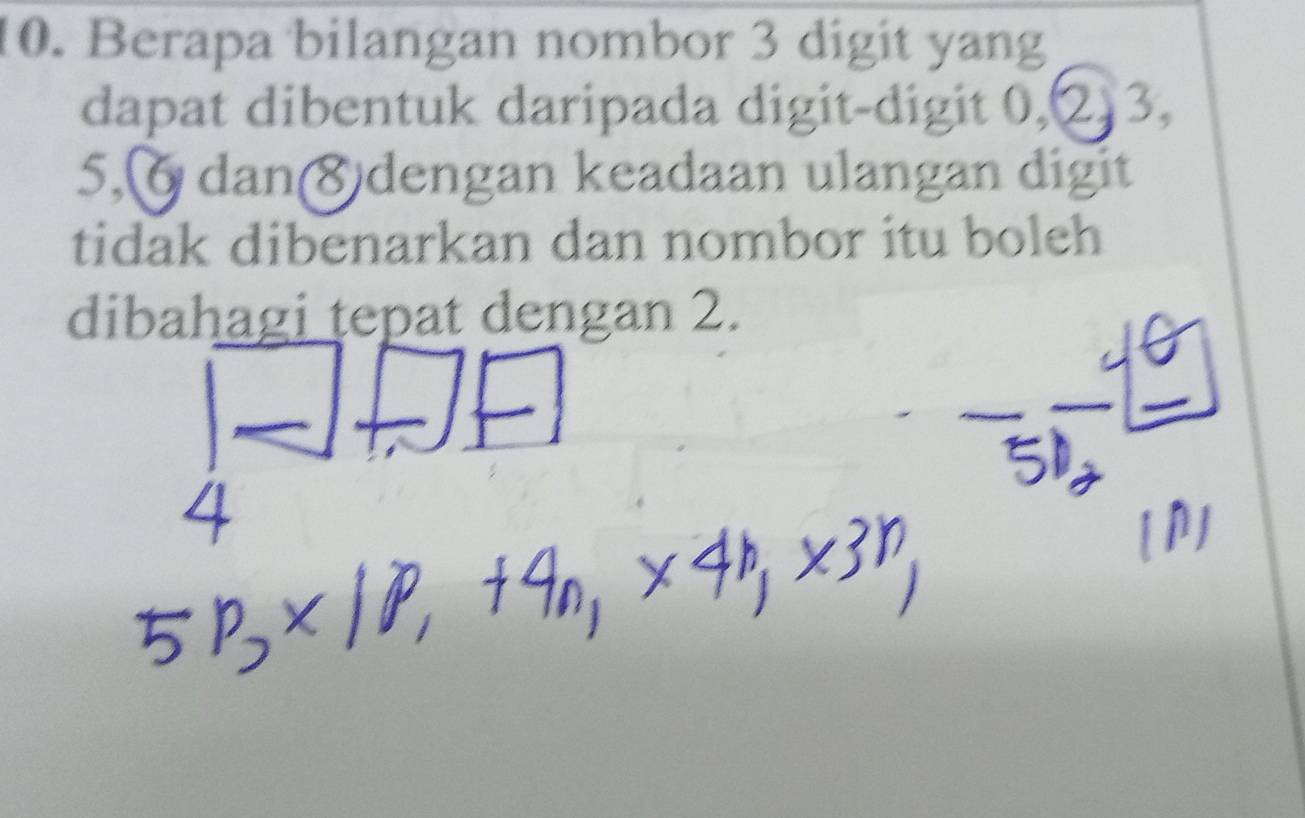 10. Berapa bilangan nombor 3 digit yang
dapat dibentuk daripada digit-digit 0, 2, 3,
5, 6 dan 8 dengan keadaan ulangan digit
tidak dibenarkan dan nombor itu boleh
dibahagi tepat dengan 2.
4
5P2
1P1
5P2 × 1P1 + 4P1 × 4P1 × 3P1